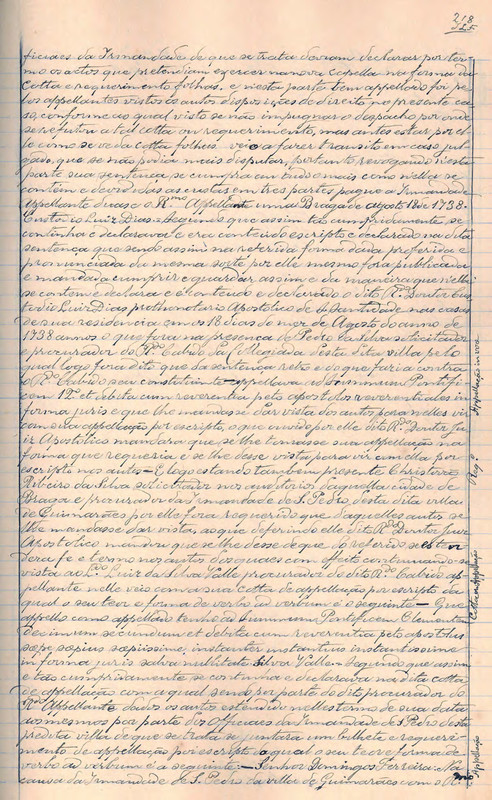 218
125
ficiaes da Irmandade de que se trata devram declarar por ter-
mo os actos que pretendiam exercer na nova capella na forma da
Cotta e requerimento folhas. e nesta parte bem appellado foi pe-
los appellantes vistos os autos disposições de direito no presente ca-
so, conforme ao qual visto se não impugnar o despacho por onde
se refutou a tal cotta ou requerimento, mas antes estar por el-
le como se ve da cotta folhas veio a fazer transito em caso jul-
gado, que se não podia mais disputar, portanto revogando nesta
parte sua sentença se cumpra em tudo o mais como nella se
contem e dividadas as custas em tres partes, pague a Irmandade
Appellante duas e o R.mo Appellante uma Braga de agosto 18 de 1738.
Custodio Luiz Dias. Segundo que assim tão cumpridamente se
continha e declarava e era conteudo escripto e declarado na dita
sentença que sendo assim na referida forma dada, proferida e
pronunciada da mesma sorte por elle mesmo fora publicada
e mandada cumprir e guardar, assim e da maneira que nella
se contem e declara e é conteudo e declarado o dito R.do Doutor Cus-
todio Luiz Dias prothonotario Apostolico de S. Santidade nas casas
de sua residencia em os 18 dias do mez de Agosto do anno de
1738 annos o que fora na presença de Pedro da Silva solicitador
e procurador do R.do Cabido da Collegiada desta dita villa pelo
qual logo fora dito que da sentença retro e do que faria contra
o R.do Cabido seu constituinte appellava ad Summum Pontifi-
cem 12 et debita cum reverentia pelos apostolos reverentiales in
forma juris e que lhe mandasse dar vista dos autos para nelles vir
com sua appellação por escripto, o que ouvido por elle dito R.do Doutor Ju-
iz Apostolico mandara que se lhe tomasse sua appellação na
forma que requeria e se lhe desse vista para vir em ella por
escripto nos autos - E logo estando tambem presente Christovão
Ribeiro da Silva solicitador nos auditorios daquella cidade de
Braga e procurador da Irmandade de S. Pedro, desta dita villa
de Guimarães por elle fora requerido que daquelles autos se
lhe mandasse dar vista, ao que deferindo elle dito R.do Doutor Juiz
Apostolico mandou que se lhe desse de que do referido se
dera fe e termo nos autos dos quaes com effeito continuando-se
vista ao L.do Luiz da Silva Valle procurador do dito R.do Cabido ap-
pellante nelle veio com a sua cotta de appellação por escripto da
qual o seu teor e forma de verbo ad verbum é o seguinte - Que
appello como appellado tenho ad Summum Pontificem Clementem
Decimum secundum et debita cum reverentia pelo apostolus
sæpe sæpius sæpissime, instanter instantius instantissime
in forma juris salva nullitat. Silva Valle - Segundo que assim
e tão cumpridamente se continha e declarava na dita cotta
de appellação com a qual sendo por parte do dito procurador do
R.do Appellante dados os autos estando nelles termo de sua data
aos mesmos por parte dos Officiaes da Irmandade de S. Pedro desta
predita villa de que se trata se juntara um bilhete e requeri-
mento de appellação por escripto, a qual o seu teor e forma de
verbo ad verbum é a seguinte - Senhor Domingos Ferreira: Na
causa da Irmandade de S. Pedro da villa de Guimarães com o R.
mo
Appellação em voz
Req.o
Cotta em appellação
Appellação